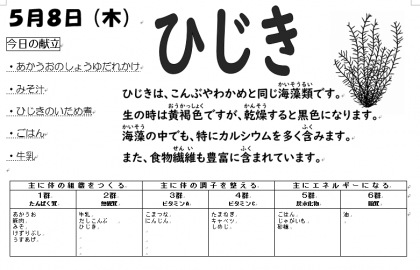 5月8日（木）
ひじき
今日の献立
・あかうおのしょうゆだれかけ
・みそ汁
・ひじきのいため煮
・ごはん
・牛乳
ひじきは、こんぶやわかめと同じ海藻類です。
生の時は黄褐色ですが、乾燥すると黒色になります。
海藻の中でも、特にカルシウムを多く含みます。
また、食物繊維も豊富に含まれています。
主に体の組織をつくる。 主に体の調子を整える。 主にエネルギーになる。
1群 2群 3群 4群 5群 6群
たんぱく質 無機質 ビタミンA ビタミンC 炭水化物 脂質
あかうお 牛乳 こまつな たまねぎ ごはん 油
豚肉 だしこんぶ にんじん キャベツ じゃがいも
みそ ひじき しめじ 砂糖
けずりぶし
うすあげ